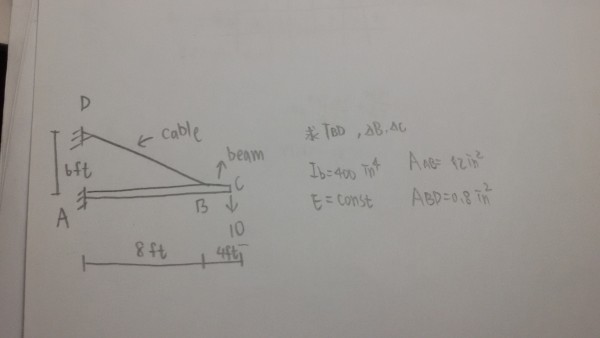 D
cable
beam
6ft
A
B
C
10
8ft
4ft
求 TBD , ΔB, ΔC
Ib=400 in⁴
AAB= 12 in²
E = const
ABD=0.8 in²